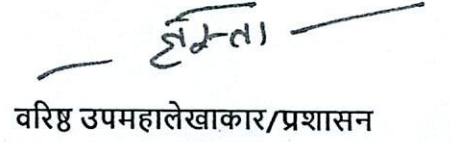 वरिष्ठ उपमहालेखाकार/प्रशासन